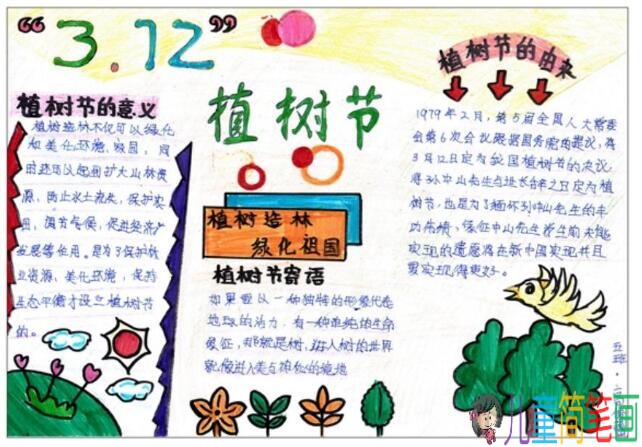 “3.12”
植树节
植树节的意义
植树造林不仅可以绿化
和美化环境、家园，同
时还可以起到扩大山林资
源，防止水土流失，保护农
田，调节气候，促进经济产
发展等作用。是为了保护林
业资源、美化环境，保持
生态平衡才设立植树节
的。
植树造林
绿化祖国
植树节寄语
如果要以一种独特的形象代表
地球的活力，有一种
象征，那就是树，进入树的世界
就像进入美与
植树节的由来
1979年2月，第5届全国人大常委
会第6次会议根据国务院的提议，将
3月12日定为我国植树节的决议，
将孙中山先生逝世之日定为植
树节，也是为了缅怀孙中山先生的丰
功伟绩，象征中山先生生前未能
实现的遗愿将在新中国实现并且
要实现得更好。
儿童简笔画